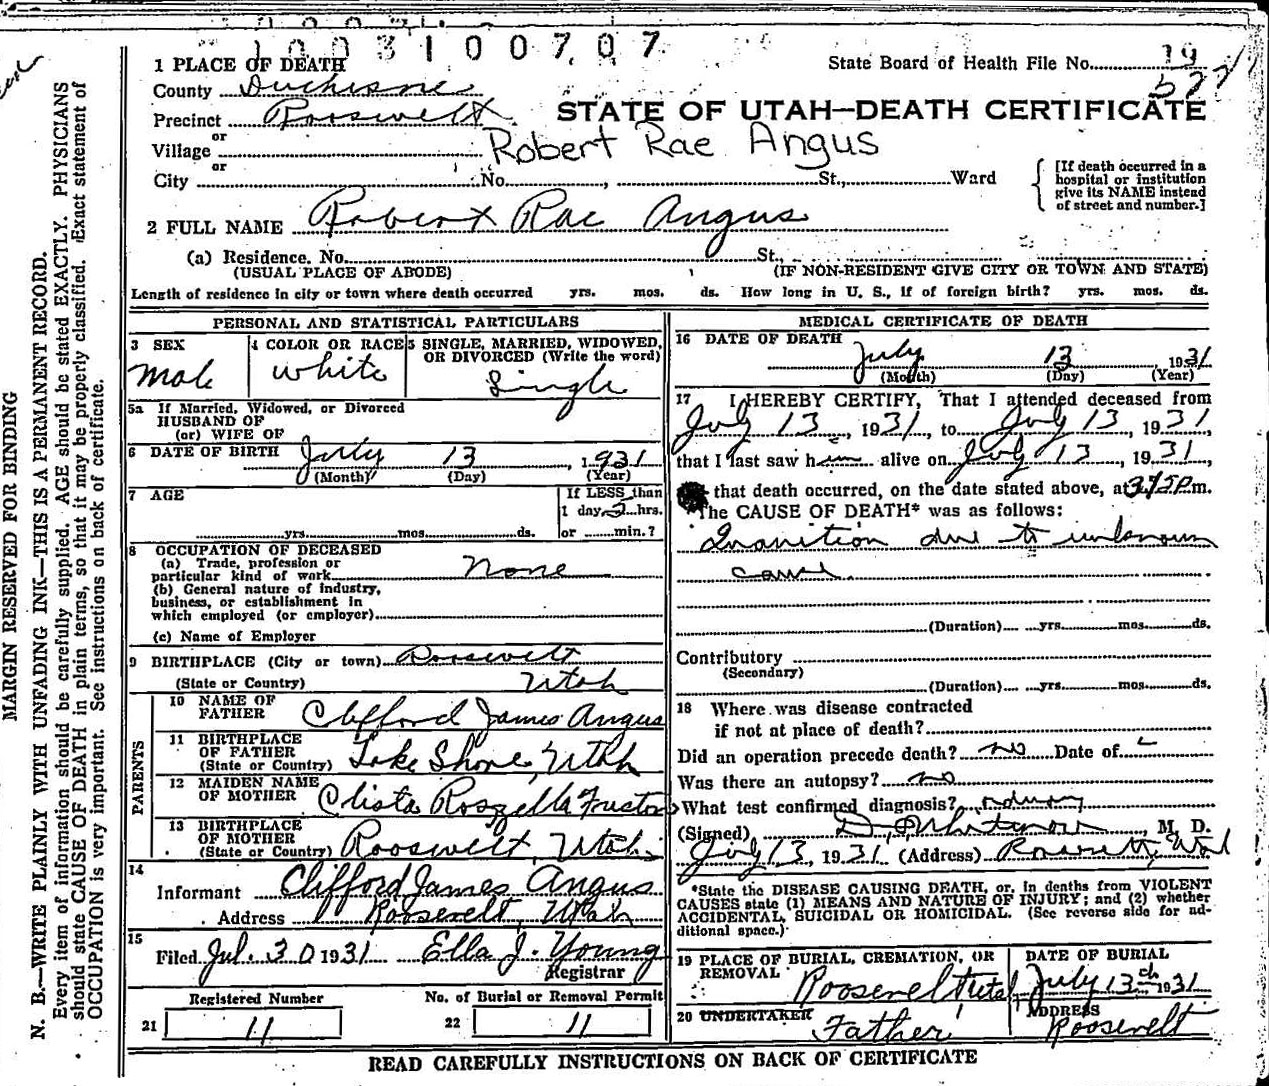 1003100707
1 PLACE OF DEATH
State Board of Health File No. 19
County Duchesne
Precinct Roosevelt
STATE OF UTAH—DEATH CERTIFICATE
or
Village
Robert Rae Angus
or
City No. , St., Ward
[If death occurred in a
hospital or institution
give its NAME instead
of street and number.]
2 FULL NAME Robert Rae Angus
(a) Residence. No. St.,
(USUAL PLACE OF ABODE) (IF NON-RESIDENT GIVE CITY OR TOWN AND STATE)
Length of residence in city or town where death occurred yrs. mos. ds. How long in U. S., if of foreign birth? yrs. mos. ds.
PERSONAL AND STATISTICAL PARTICULARS
3 SEX
Male
4 COLOR OR RACE
White
5 SINGLE, MARRIED, WIDOWED,
OR DIVORCED (Write the word)
Single
5a If Married, Widowed, or Divorced
HUSBAND OF
(or) WIFE OF
6 DATE OF BIRTH July 13, 1931
(Month) (Day) (Year)
7 AGE
yrs. mos. ds.
If LESS than
1 day, 2 hrs.
or min.?
8 OCCUPATION OF DECEASED
(a) Trade, profession or
particular kind of work None
(b) General nature of industry,
business, or establishment in
which employed (or employer)
(c) Name of Employer
9 BIRTHPLACE (City or town) Roosevelt
(State or Country) Utah
PARENTS
10 NAME OF
FATHER Clifford James Angus
11 BIRTHPLACE
OF FATHER
(State or Country) Lake Shore, Utah
12 MAIDEN NAME
OF MOTHER Clista Roszella
13 BIRTHPLACE
OF MOTHER
(State or Country) Roosevelt, Utah
14
Informant Clifford James Angus
Address Roosevelt, Utah
15
Filed Jul. 30 1931 Ella J. Young
Registrar
Registered Number
21 11
No. of Burial or Removal Permit
22 11
MEDICAL CERTIFICATE OF DEATH
16 DATE OF DEATH
July 13 1931
(Month) (Day) (Year)
17 I HEREBY CERTIFY, That I attended deceased from
July 13, 1931, to July 13, 1931,
that I last saw him alive on July 13, 1931,
that death occurred, on the date stated above, at m.
The CAUSE OF DEATH* was as follows:
Inanition due to unknown
cause
(Duration) yrs. mos. ds.
Contributory
(Secondary)
(Duration) yrs. mos. ds.
18 Where was disease contracted
if not at place of death?
Did an operation precede death? no Date of
Was there an autopsy? no
What test confirmed diagnosis?
(Signed), M. D.
July 13, 1931 (Address) Roosevelt, Utah
*State the DISEASE CAUSING DEATH, or, in deaths from VIOLENT
CAUSES state (1) MEANS AND NATURE OF INJURY; and (2) whether
ACCIDENTAL, SUICIDAL OR HOMICIDAL. (See reverse side for ad-
ditional space.)
19 PLACE OF BURIAL, CREMATION, OR
REMOVAL Roosevelt Utah
DATE OF BURIAL
July 13th 1931
20 UNDERTAKER
Father
ADDRESS
Roosevelt
READ CAREFULLY INSTRUCTIONS ON BACK OF CERTIFICATE
MARGIN RESERVED FOR BINDING
N. B.—WRITE PLAINLY WITH UNFADING INK—THIS IS A PERMANENT RECORD.
Every item of information should be carefully supplied. AGE should be stated EXACTLY. PHYSICIANS
should state CAUSE OF DEATH in plain terms, so that it may be properly classified. Exact statement of
OCCUPATION is very important. See instructions on back of certificate.